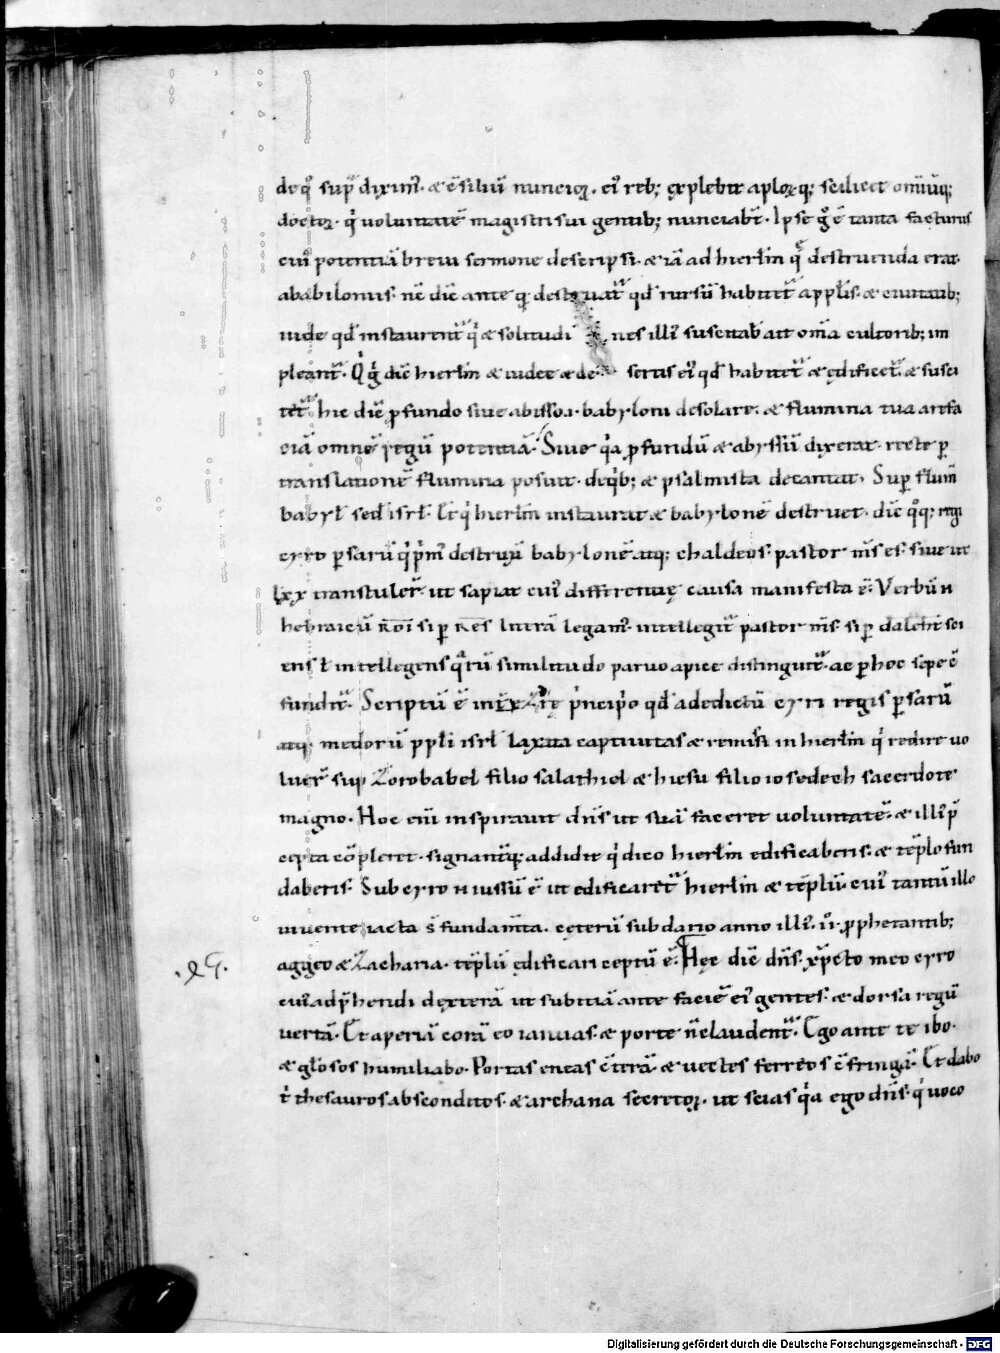 deq̊ supͣ diximꝰ. æ c̄siliū nuncioꝝ. eiꝰ reb; ęxplebit aploꝝq; scilicet omniūq;
doctoꝝ. qͥ voluntatē magistri sui gentib; nunciabt̄. Ipse g̊ ē tanta facturus
cuiꝰ potentiā brevi sermone descripsi. æ iā ad hierłm q̄ destruenda erat
ababilonus. nē diē ante q̄ destruat̄ qd̄ rursū habitet̄ appłis. æ ciuitatib;
iude qd̄ instaurent̄ qͥ æ solitudi nes illiꝰ suscitab̄ att om̄a cultorib; im
pleant̄. Qͥ g̊ diē hierłm æ iudee æ de sertis eiꝰ qd̄ habitet̄ æ ędificet̄. æ susci
tet̄ hic diē ꝓfundo siue abisso. babyloni desolare. æ flumina tua arefa
ciā omnē regū potentiā. Siue qͥa ꝓfundū æ abyssū dixerat. recte ꝑ
translationē flumina posuit. deqͥb; æ psalmista decantat. Suꝑ flum̄
babył sed isrł. Et qͥ hierłm instaurat æ babylonē destruet. diē q̊q; regi
cyro ꝑsarū qͥ pͥmꝰ destruxit babylonē atq; chaldeos. pastor m̄s es. siue ut
lxx transtuler̄ ut sapiat cuiꝰ differentię causa manifesta ē. Verbū n
hebraicū roi si ꝑ res litterā legamꝰ. intellegit̄ pastor m̄s. si ꝑ daleth sci
ens ł intellegens qͣrū similitudo parvo apice distinguit̄. ac ꝑ hoc sepe c̄
fundit̄. Scriptū ē in ezre pͥncipio qd̄ adedictū cyri regis ꝑsarū
atq; medorū ppłi isrł laxata captiuitas æ remissi in hierłm qͥ redire uo
luer̄ sup Zorobabel filio salathiel æ hiesu filio iosedech sacerdote
magno. Hoc eniꝰ inspiravit dn̄s ut suā faceret uoluntatē. æ illiꝰ p̄
cepta cōpleret. signant̄q; addidit qͥ dico hierłm edificaberis. æ tēplo fun
daberis. Sub cyro n iussū ē ut edificaret̄ hierłm æ tēplū. cuiꝰ tantū illo
uiuente iacta s̄ fundam̄ta. cęterū sub dario anno illiꝰ. ii̊. ꝓphetantib;
aggeo æ Zacharia. tēplū ędificari ceptū ē. Hęc diē dn̄s. xp̄cto meo cyro
cuiꝰ adp̄hendi dęxterā ut subitiā ante faciē eiꝰ gentes. æ dorsa regū
vertā. Et aperiā corā eo ianuas. æ porte n̄ claudent̄. Ego ante te ibo.
æ głosos humiliabo. Portas ereas c̄terā. æ uectes ferreos c̄fringā. Et dabo
tͥ thesauros absconditos. æ archana secretoꝝ. ut scias qͥa ego dn̄s. qͥ uoco